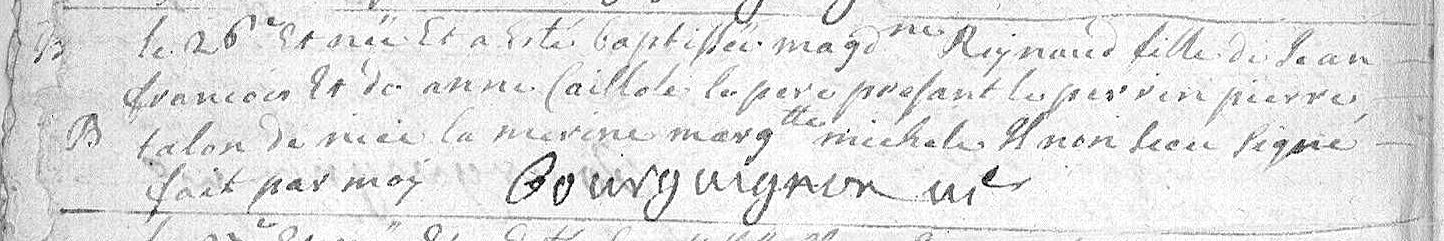 B le 26e Et née Et a Esté baptisée magdne Reynaud fille de Jean
francois Et de anne Caillole le pere presant le perrin pierre
B talon de nice la merine margtte michele Et non sceu signé
fait par moy Bourguignon vic